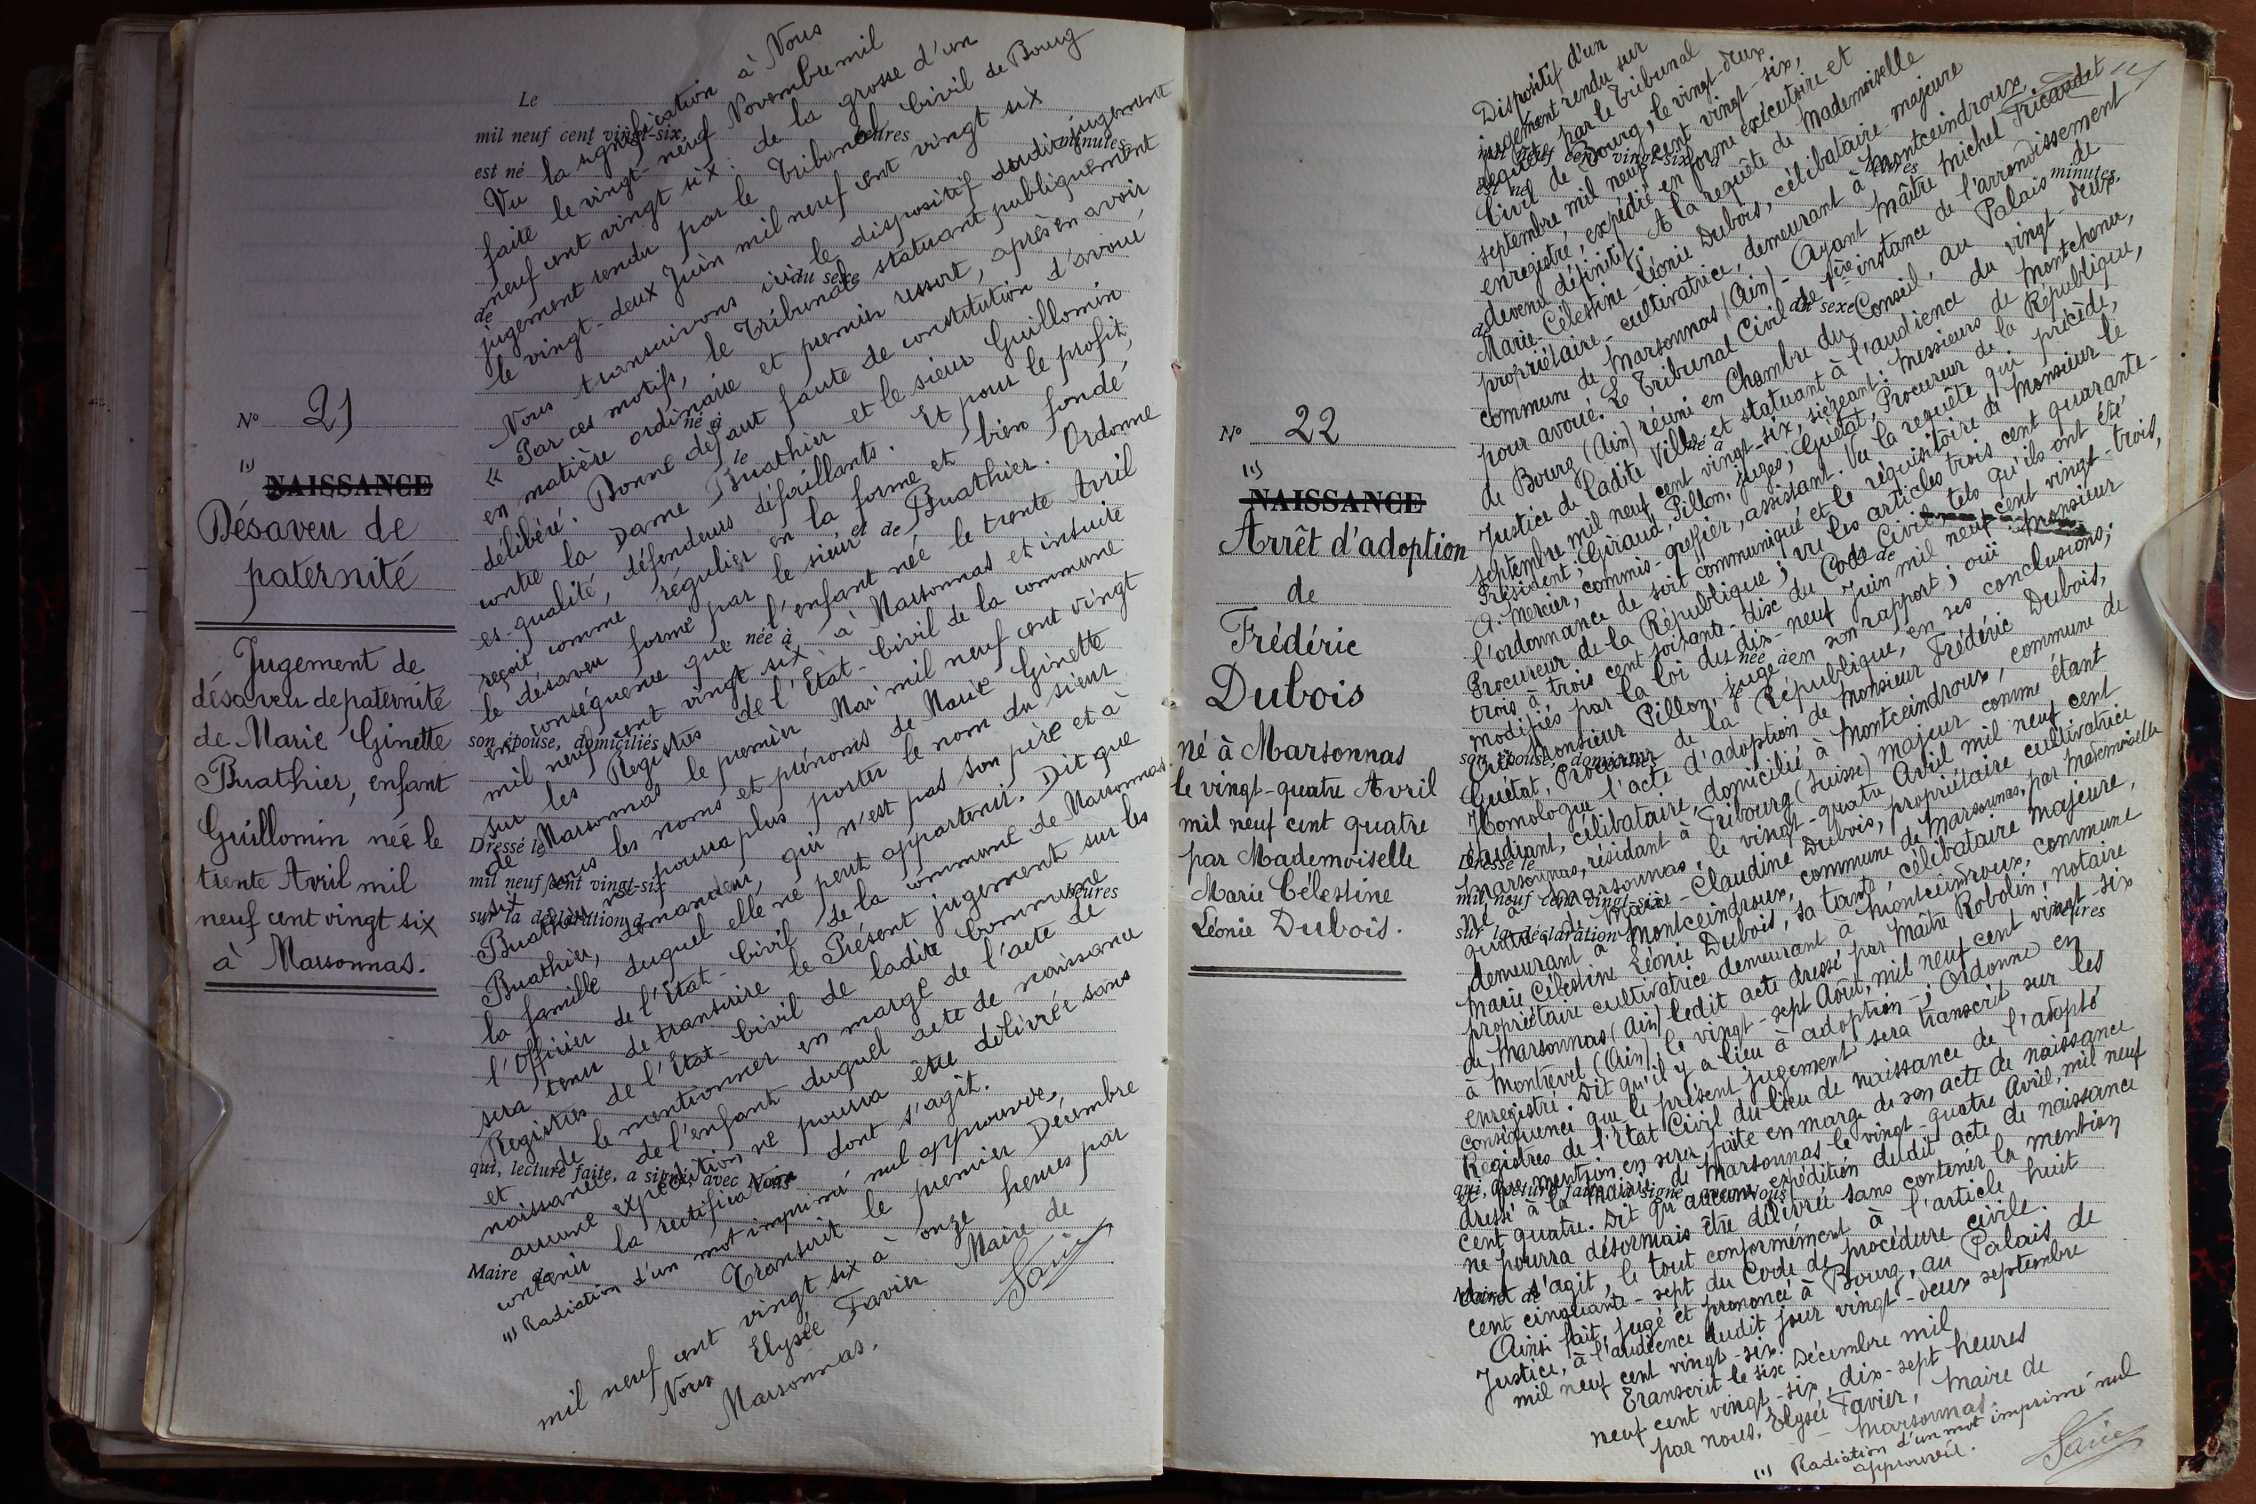 N° 21
(1)
NAISSANCE
Désaveu de
paternité
Jugement de
désaveu de paternité
de Marie Ginette
Buathier, enfant
Guillomin née le
trente Avril mil
neuf cent vingt six
à Marsonnas.
Le
mil neuf cent vingt-six,
heures
minutes
est né
du sexe
de
né à
le
et de
née à
le
son épouse, domiciliés
Dressé le
mil neuf cent vingt-six
heures
sur la déclaration d
qui, lecture faite, a signé avec Nous
Maire de
Vu la signification à Nous
faite le vingt-neuf Novembre mil
neuf cent vingt six : de la grosse d'un
jugement rendu par le Tribunal Civil de Bourg
le vingt-deux Juin mil neuf cent vingt six
Nous transcrivons ici le dispositif dudit jugement
« Par ces motifs, le Tribunal statuant publiquement
en matière ordinaire et premier ressort, après en avoir
délibéré. Donne défaut faute de constitution d'avoué
contre la Dame Buathier et le sieur Guillomin
es-qualité, défendeurs défaillants. Et pour le profit,
reçoit comme régulier en la forme et bien fondé,
le désaveu formé par le sieur Buathier. Ordonne
en conséquence que l'enfant née le trente Avril
mil neuf cent vingt six à Marsonnas et inscrite
sur les Registres de l'Etat-Civil de la commune
de Marsonnas le premier Mai mil neuf cent vingt
six sous les noms et prénoms de Marie Ginette
Buathier ne pourra plus porter le nom du sieur
Buathier, demandeur, qui n'est pas son père et à
la famille duquel elle ne peut appartenir. Dit que
l'Officier de l'Etat-Civil de la commune de Marsonnas
sera tenu de transcrire le Présent jugement sur les
Registres de l'Etat-Civil de ladite Commune
et de le mentionner en marge de l'acte de
naissance de l'enfant duquel acte de naissance
aucune expédition ne pourra être délivrée sans
contenir la rectification dont s'agit.
(1) Radiation d'un mot imprimé nul approuvée,
Transcrit le premier Décembre
mil neuf cent vingt six à onze heures par
Nous Elysée Favier Maire de
Marsonnas.
N° 22
(1)
NAISSANCE
Arrêt d'adoption
de
Frédéric
Dubois
né à Marsonnas
le vingt-quatre Avril
mil neuf cent quatre
par Mademoiselle
Marie Célestine
Léonie Dubois.
mil neuf cent vingt-six, à
heures
minutes
est né
du sexe
de
né à
le
et de
née à
le
son épouse, domiciliés
Dressé le
mil neuf cent vingt-six
heures
sur la déclaration d
qui, lecture faite, a signé avec Nous
Maire de
Dispositif d'un
jugement rendu sur
requête par le Tribunal
Civil de Bourg, le vingt-deux
septembre, mil neuf cent vingt-six,
enregistré, expédié en forme exécutoire et
devenu définitif. A la requête de Mademoiselle
Marie-Célestine-Léonie Dubois, célibataire majeure
propriétaire-cultivatrice, demeurant à Montceindroux,
commune de Marsonnas (Ain) - Ayant Maître Michel Tricaudet
pour avoué. Le Tribunal Civil de 1ère instance de l'arrondissement
de Bourg (Ain) réuni en Chambre du Conseil, au Palais de
Justice de ladite Ville et statuant à l'audience du vingt-deux,
septembre mil neuf cent vingt-six, siégeant: Messieurs de Montchenu,
Président; Giraud, Pillon, juges; Guétat, Procureur de la République,
A. Mercier, commis-greffier, assistant. Vu la requête qui précède,
l'ordonnance de soit communiqué et le réquisitoire de Monsieur le
Procureur de la République; vu les articles trois cent quarante-
trois à trois cent soixante-dix du Code Civil, tels qu'ils ont été
modifiés par la loi du dix-neuf Juin mil neuf cent vingt-trois,
Ouï Monsieur Pillon, juge en son rapport; ouï Monsieur
Guétat, Procureur de la République, en ses conclusions;
Homologue l'acte d'adoption de Monsieur Frédéric Dubois,
étudiant, célibataire, domicilié à Montceindroux, commune de
Marsonnas, résidant à Fribourg (Suisse) majeur comme étant
né à Marsonnas, le vingt-quatre Avril mil neuf cent
quatre, de Marie-Claudine Dubois, propriétaire cultivatrice
demeurant à Montceindroux, commune de Marsonnas, par Mademoiselle
Marie Célestine Léonie Dubois, sa tante, célibataire majeure,
propriétaire cultivatrice demeurant à Montceindroux, commune
de Marsonnas (Ain) ledit acte dressé par Maître Robolin, notaire
à Montrevel (Ain), le vingt-sept Août, mil neuf cent vingt-six
enregistré. Dit qu'il y a lieu à adoption -; Ordonne en
conséquence que le présent jugement sera transcrit sur les
Registres de l'Etat Civil du lieu de naissance de l'adopté
et que mention en sera faite en marge de son acte de naissance
dressé à la Mairie de Marsonnas le vingt-quatre Avril, mil neuf
cent quatre. Dit qu'aucune expédition dudit acte de naissance
ne pourra désormais être délivrée sans contenir la mention
dont s'agit, le tout conformément à l'article huit
cent cinquante-sept du Code de procédure civile.
Ainsi fait, jugé et prononcé à Bourg, au Palais de
Justice, à l'audience dudit jour vingt-deux septembre
mil neuf cent vingt-six.
Transcrit le six Décembre mil
neuf cent vingt-six, dix-sept heures
par nous, Elysée Favier, Maire de
Marsonnas.
(1) Radiation d'un mot imprimé nul
approuvée.